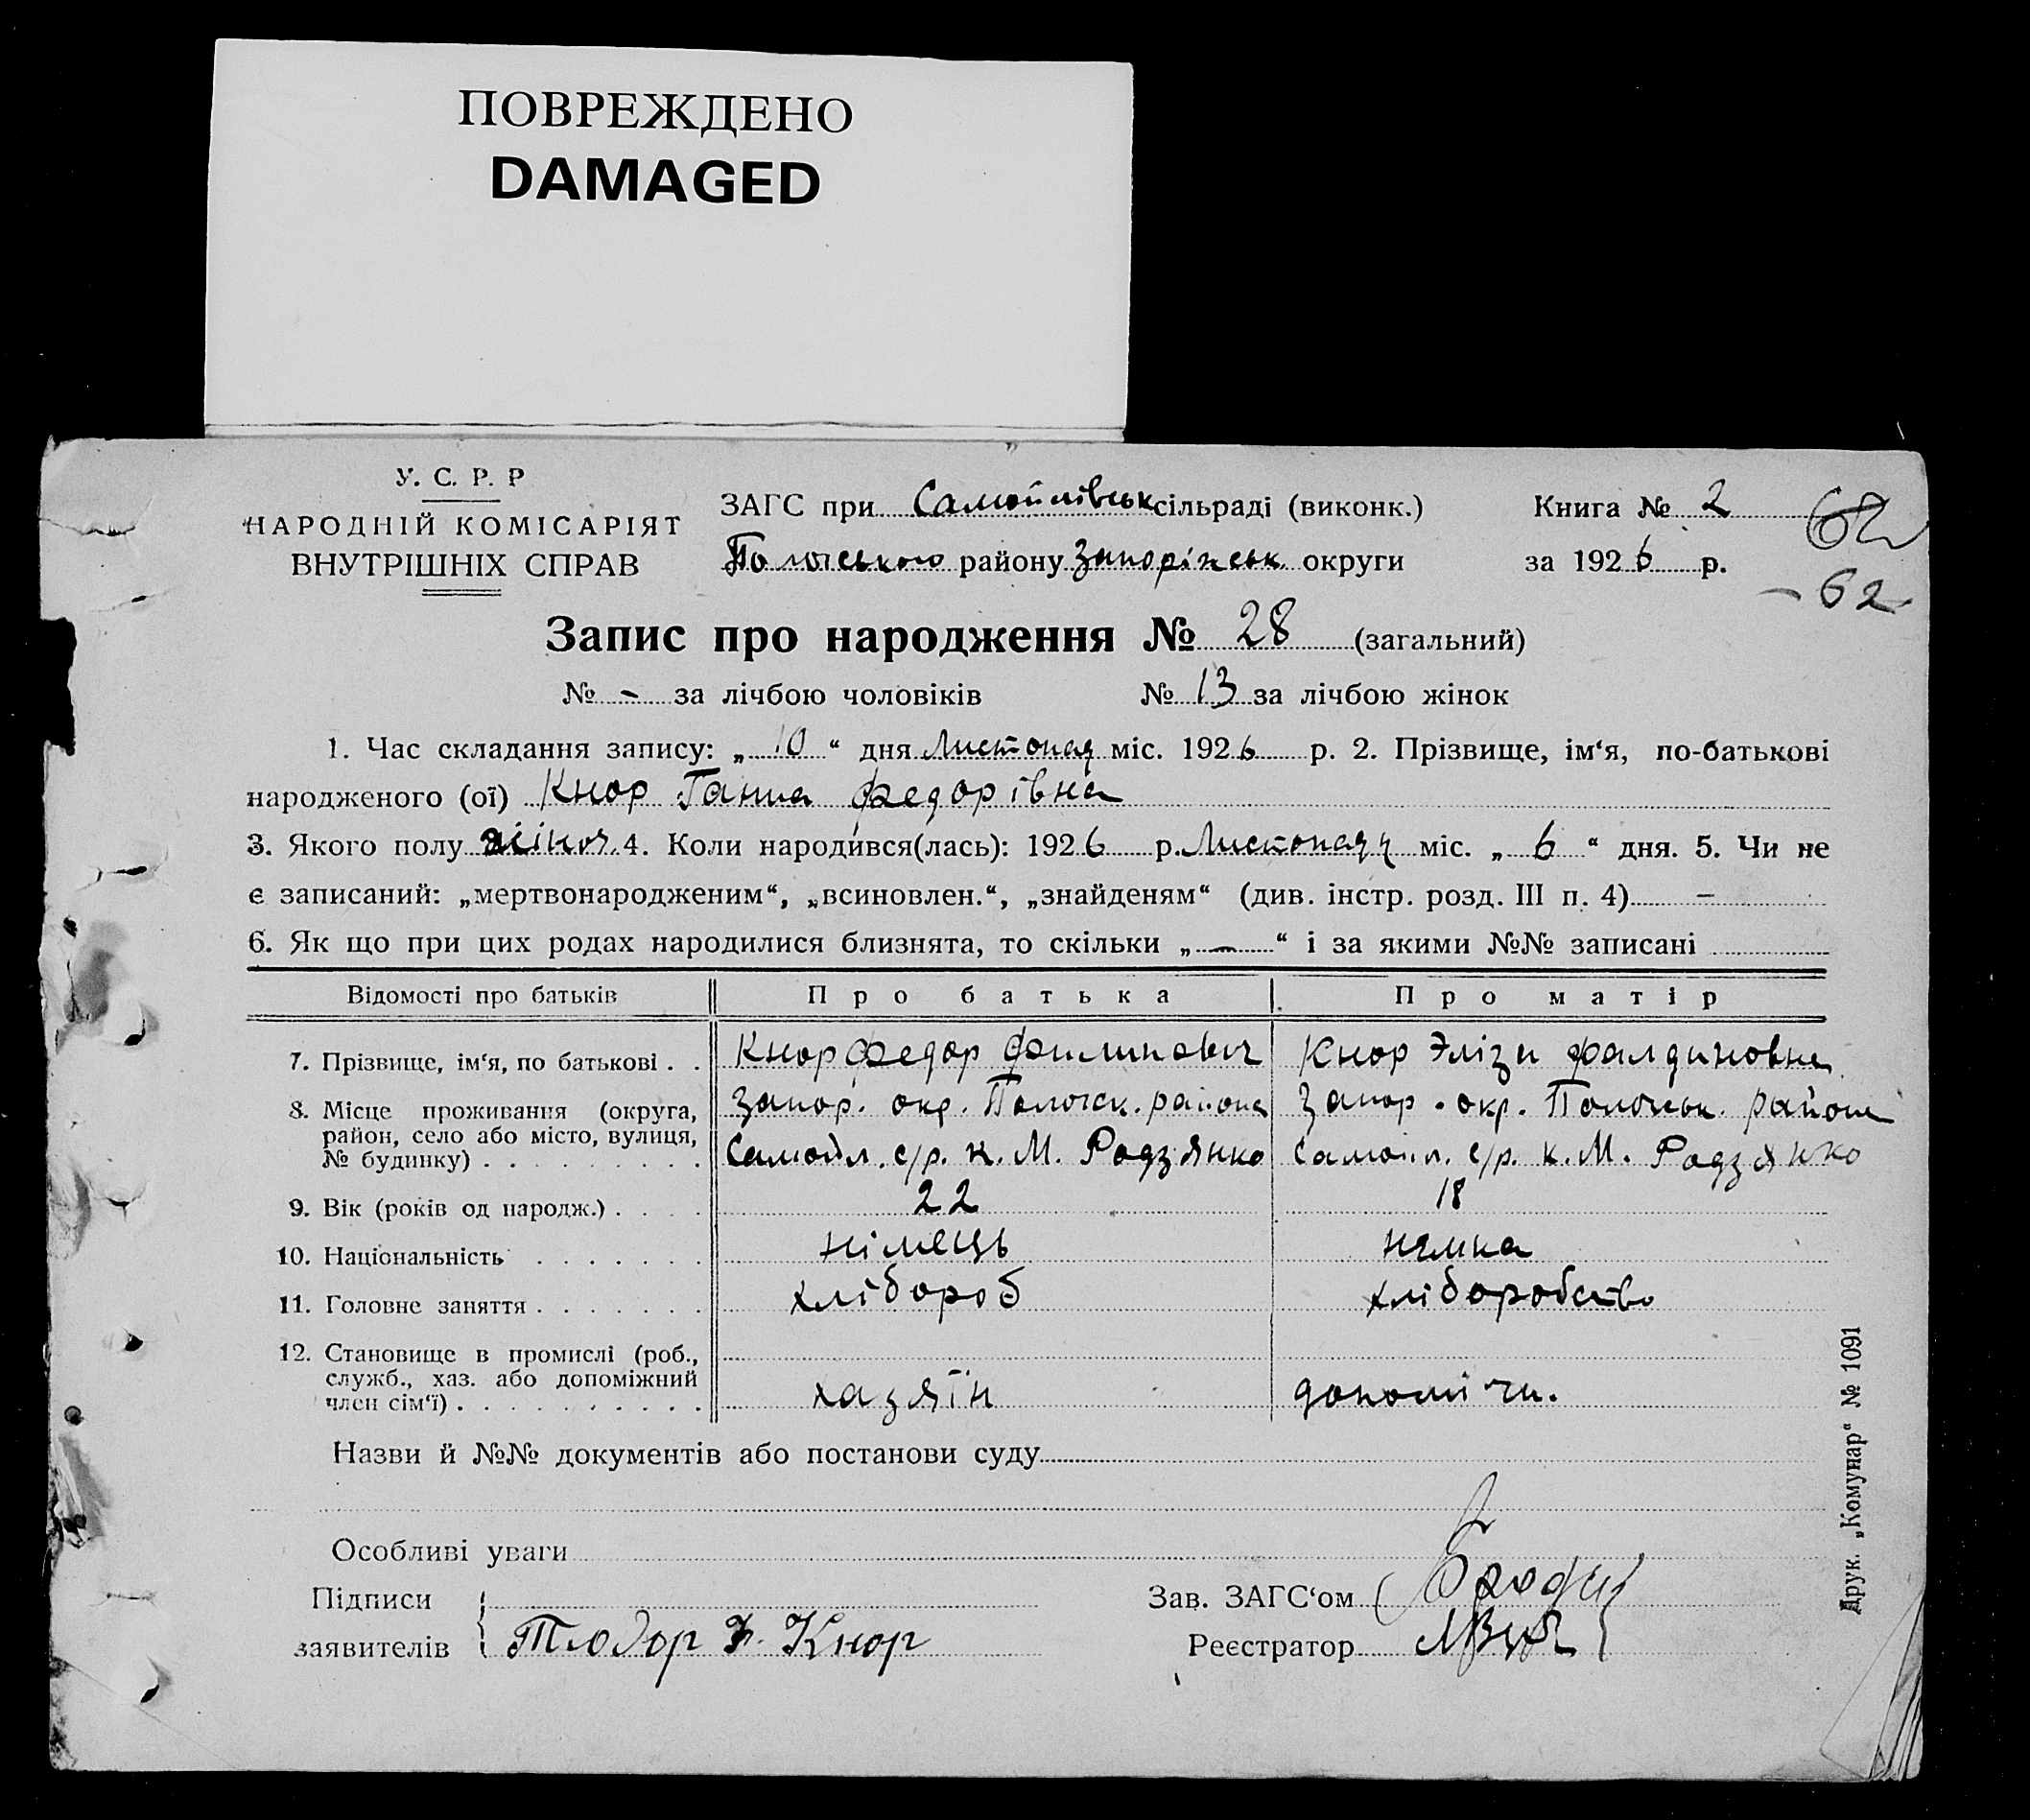 ПОВРЕЖДЕНО
DAMAGED
У. С. Р. Р
НАРОДНІЙ КОМІСАРІЯТ
ВНУТРІШНІХ СПРАВ
ЗАГС при Самойлівськ сільраді (виконк.)
Пологського району Запоріжськ округи
Книга № 2
за 1926 р.
62
- 62
Запис про народження № 28 (загальний)
№ - за лічбою чоловіків № 13 за лічбою жінок
1. Час складання запису: „10“ дня Листопад міс. 1926 р. 2. Прізвище, ім‘я, по-батькові
народженого (ої) Кнор Ганна Федорівна
3. Якого полу жіноч. 4. Коли народився(лась): 1926 р. Листопаду міс. „6“ дня. 5. Чи не
є записаний: „мертвонародженим“, „всиновлен.“, „знайденям“ (див. інстр. розд. III п. 4) -
6. Як що при цих родах народилися близнята, то скільки „-“ і за якими №№ записані
Відомості про батьків Про батька Про матір
7. Прізвище, ім‘я, по батькові . . Кнор Федор Филипович Кнор Эліза
8. Місце проживання (округа, район, село або місто, вулиця, № будинку) . . . . . . . . .
Запор. окр. Пологск. района Запор. окр. Пологськ. района
Самойл. с/р. к. М. Родзянко Самойл. с/р. к. М. Родзянко
9. Вік (років од народж.) . . . . 22 18
10. Національність . . . . . . . німець немка
11. Головне заняття . . . . . . . хлібороб хліборобство
12. Становище в промислі (роб., служб., хаз. або допоміжний член сім‘ї) . . . . . . . . . . хазяїн допоміжн.
Назви й №№ документів або постанови суду
Особливі уваги
Підписи
заявителів Теодор Ф. Кнор
Зав. ЗАГС‘ом
Реєстратор
Друк. „Комунар“ № 1091